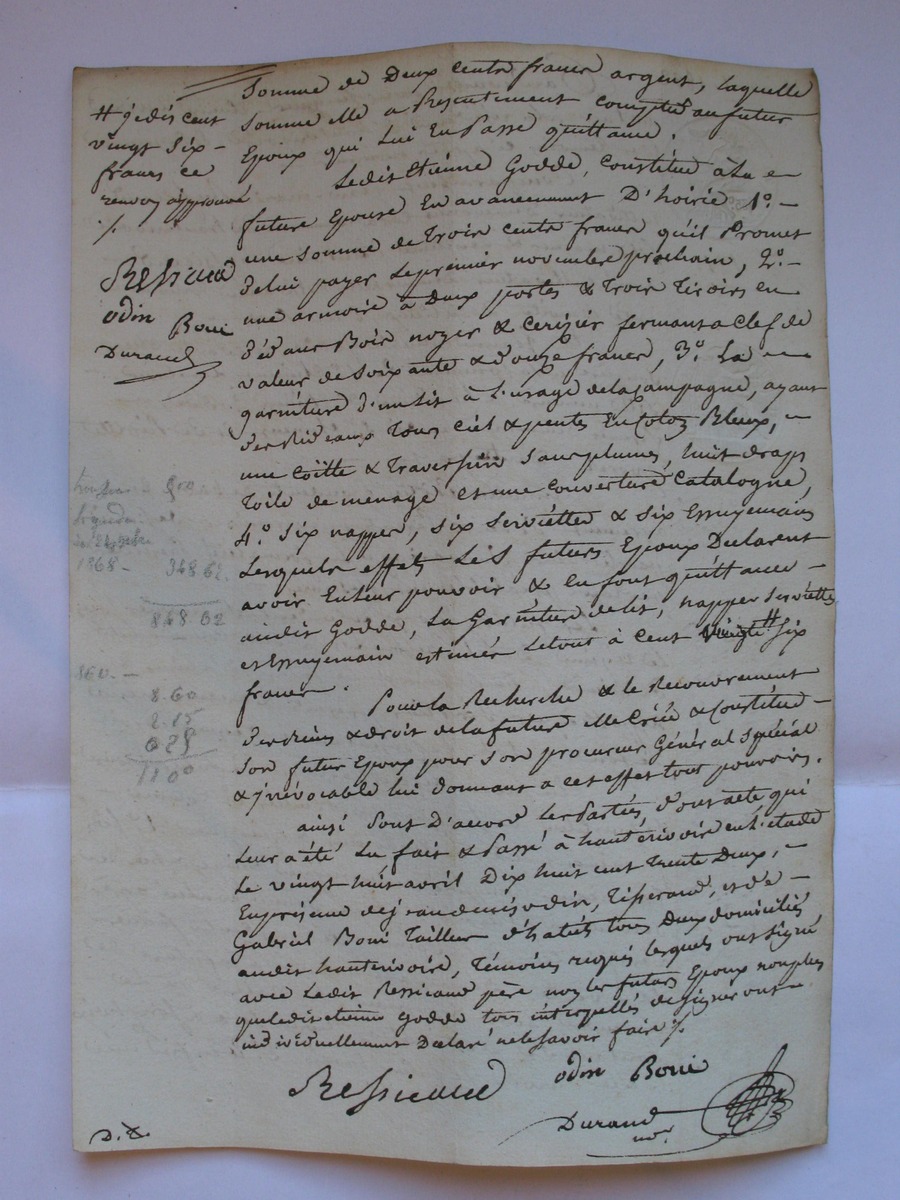 somme de Deux cents francs argent, laquelle
somme elle a Présentement comptée au futur
Epoux qui Lui En Passe quittance.
Ledit Etienne Godde, Constitue à La
future Epouse En avancement D'hoirie 1°. -
une somme de Trois cents francs qu'il Promet
de lui payer le premier novembre prochain, 2°. -
une armoire à Deux portes & Trois Tiroirs en
dedans Bois noyer & cerizier fermant a clef de
valeur de soixante & douze francs, 3°. La
garniture d'un Lit à L'usage de la Campagne, ayant
des Rideaux Tours Ciel & pentes En Coton Bleux, -
une Coëtte & Traversin sans plumes, huit draps
Toile de menage et une couverture Catalogne,
4°. six nappes, six serviettes & six Essuyemains
Lesquels effets Les futurs Epoux Declarent
avoir En leur pouvoir & en font quittance -
audit Godde, La Garniture de lit, nappes serviettes
et Essuyemain estimés Le tout à Cent vingt # six
francs.
Pour la Recherche & le Recouvrement
des biens & droits de la future elle Créé & Constitue -
son futur Epoux pour son procureur Général spécial
& irrévocable lui donnant a cet effet tous pouvoirs.
ainsi sont D'accord les Parties, dont acte qui
Leur a été Lu fait & Passé à hauterivoire en l'étude
Le vingt huit avril Dix huit cent Trente Deux, -
En présence de jean denis odin, Tisserand, et de -
Gabriel Boni Tailleur d'habits tous Deux domiciliés
audit hauterivoire, Témoins requis lesquels ont signé
avec Ledit Ressicaud père non les futurs Epoux non plus
que ledit etienne Godde tous interpellés de signer ont -
individuellement Declaré ne le savoir faire ./.
Ressicaud
odin Boni
Durand
nore
D. &.
# ledit cent
vingt six -
francs ce
renvoi approuvé
./.
Ressicaud
odin Boni
Durand
500
1868 - 348 62
848 62
8.60
2.15
0 25
11 00